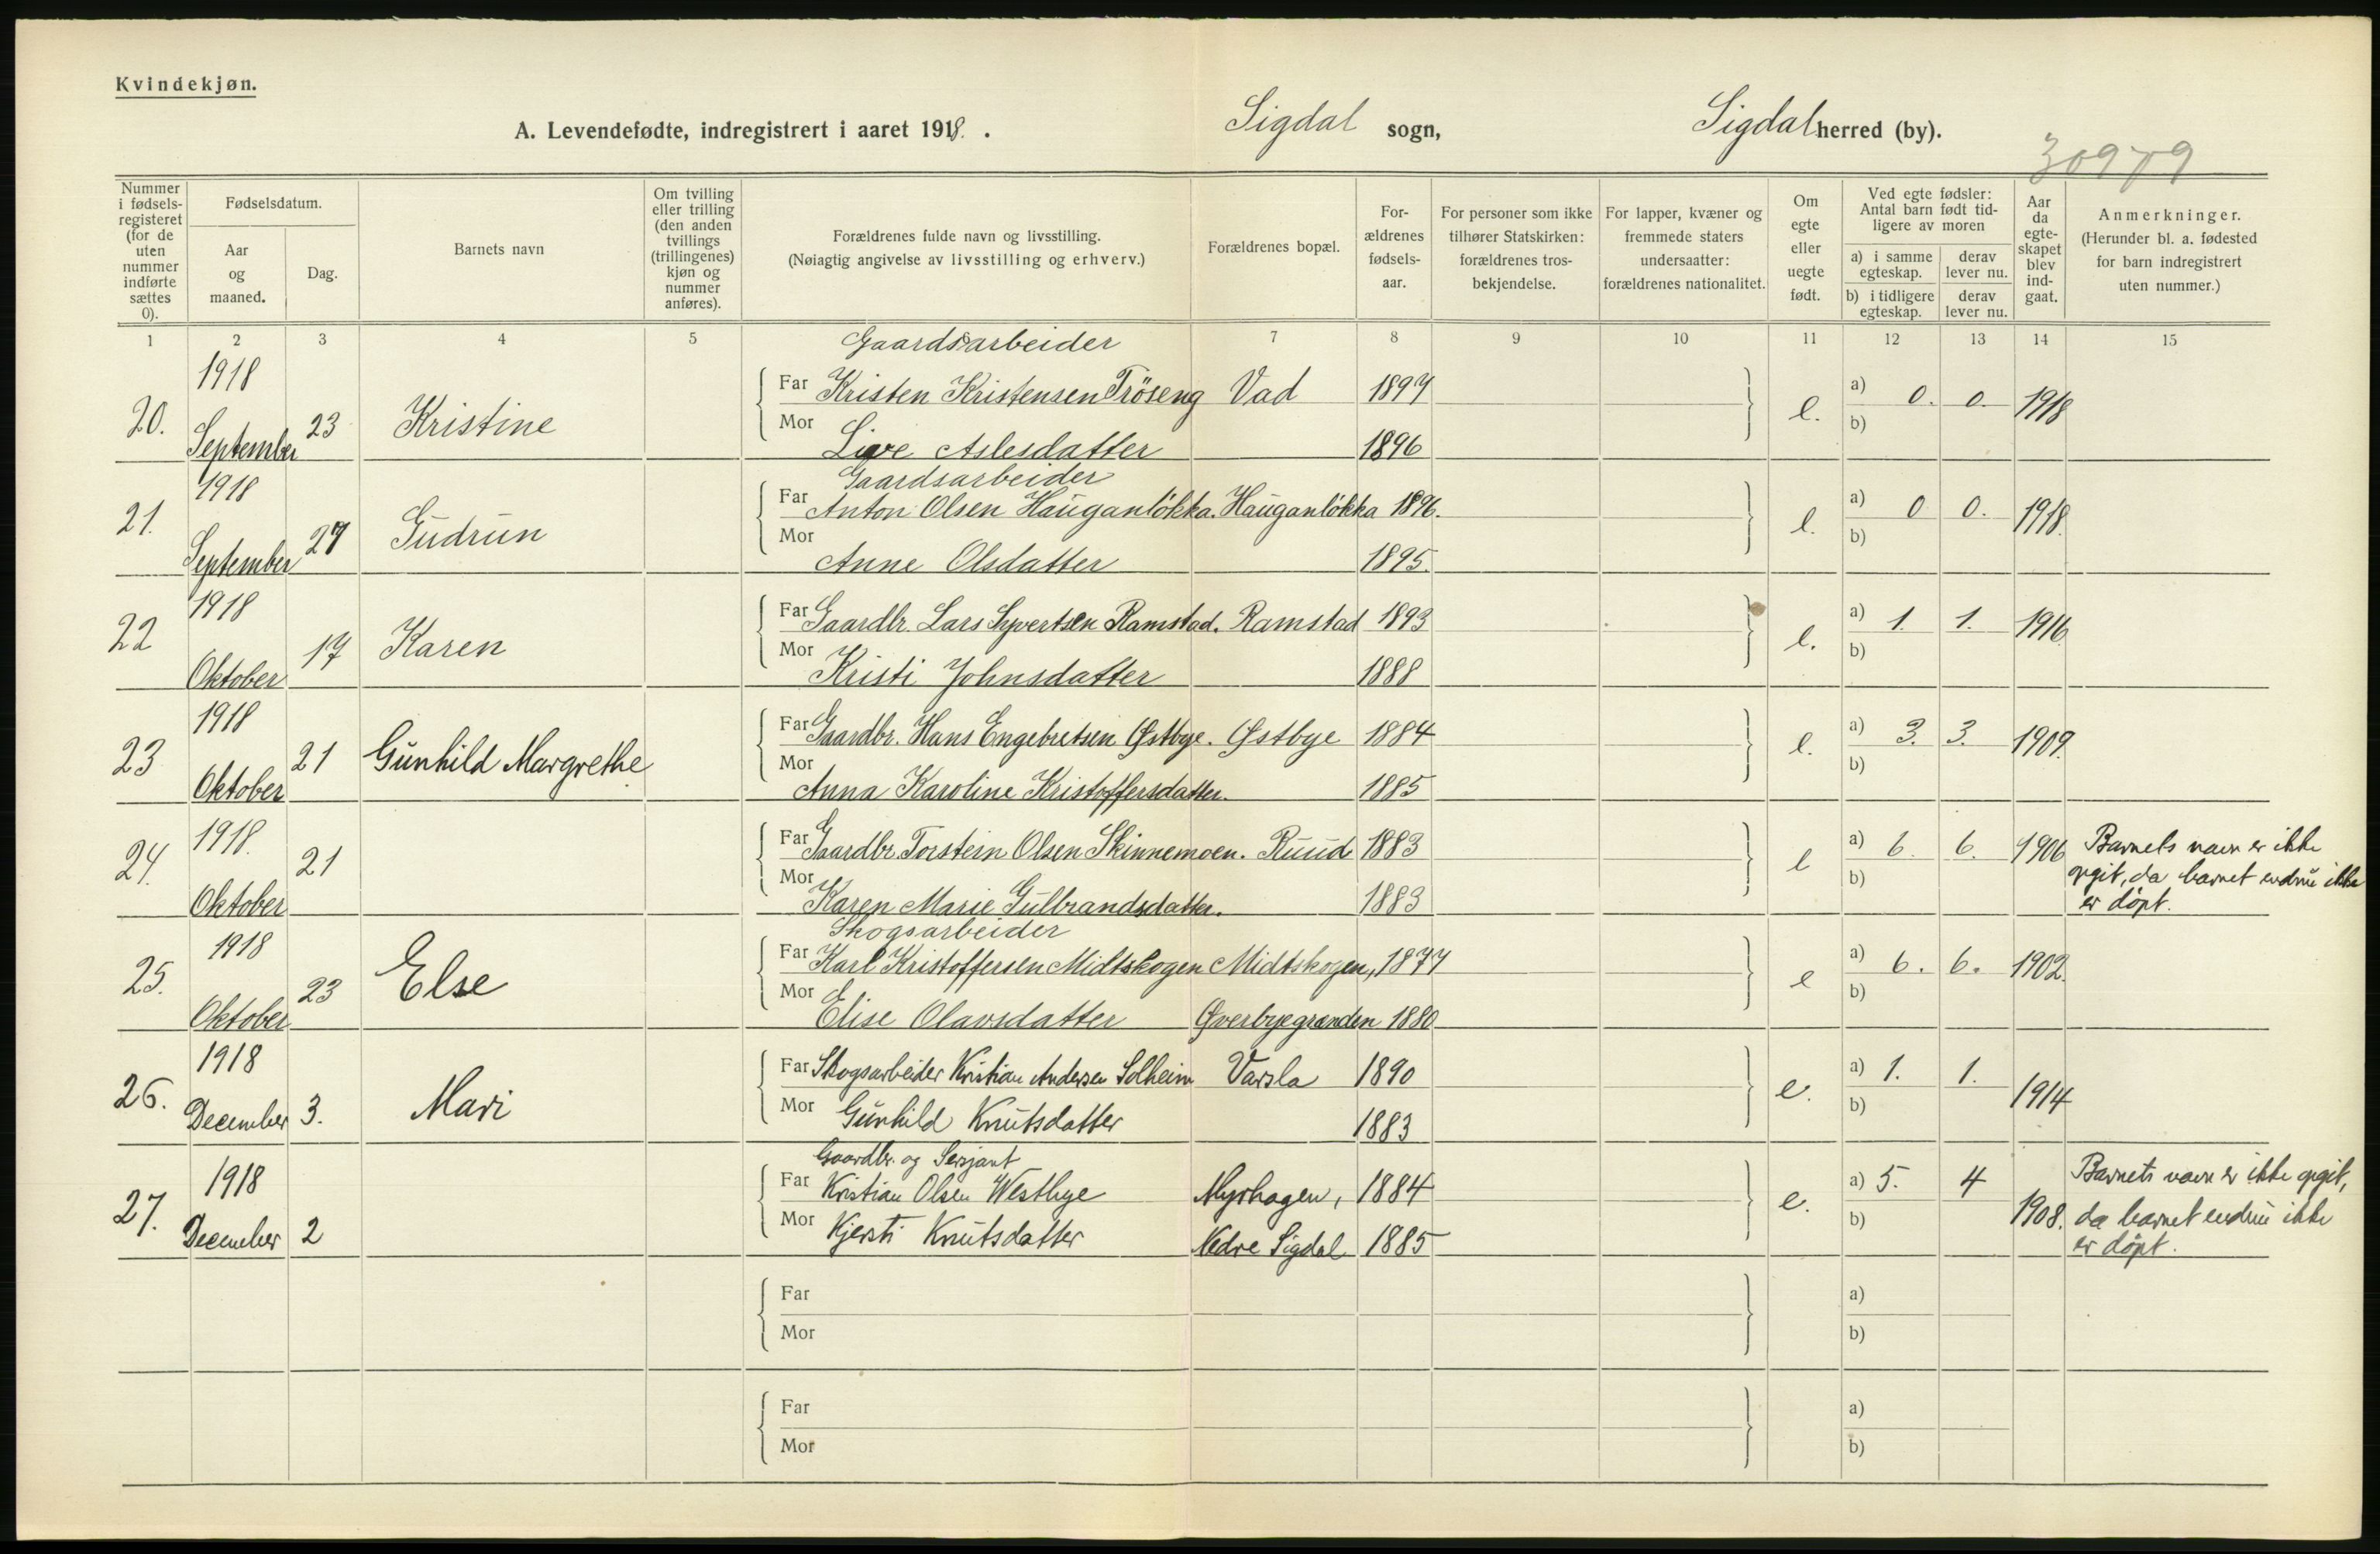 Kvindekjøn.
A. Levendefødte, indregistrert i aaret 1918. Sigdal sogn, Sigdal herred (by).
30979
Nummer i fødsels-registeret (for de uten nummer indførte sættes 0).
Fødselsdatum.
Aar og maaned.
Dag.
Barnets navn
Om tvilling eller trilling (den anden tvillings (trillingenes) kjøn og nummer anføres).
Forældrenes fulde navn og livsstilling.
(Nøiagtig angivelse av livsstilling og erhverv.)
Forældrenes bopæl.
For-ældrenes fødsels-aar.
For personer som ikke tilhører Statskirken: forældrenes tros-bekjendelse.
For lapper, kvæner og fremmede staters undersaatter: forældrenes nationalitet.
Om egte eller uegte født.
Ved egte fødsler: Antal barn født tid-ligere av moren
a) i samme egteskap. derav lever nu.
b) i tidligere egteskap. derav lever nu.
Aar da egte-skapet blev ind-gaat.
Anmerkninger.
(Herunder bl. a. fødested for barn indregistrert uten nummer.)
1 2 3 4 5 7 8 9 10 11 12 13 14 15
Gaardsarbeider
1918
Far Kristen Kristensen Tröseng Vad 1897 a) 0. 0.
20. September 23 Kristine e. 1918
Mor Live Aslesdatter 1896 b)
Gaardsarbeider
1918
Far Anton Olsen Hauganlökka. Hauganlökka 1896. a) 0 0.
21. September 27 Gudrun e. 1918.
Mor Anne Olsdatter 1895. b)
1918
Far Gaardbr. Lars Syvertsen Ramstad. Ramstad 1893 a) 1. 1.
22 Oktober 17 Karen e. 1916
Mor Kristi Johnsdatter 1888 b)
1918
Far Gaardbr. Hans Engebretsen Østbye. Østbye 1884 a) 3. 3.
23 Oktober 21 Gunhild Margrethe e. 1909.
Mor Anna Karoline Kristoffersdatter. 1885 b)
1918.
Far Gaardbr. Torstein Olsen Skinnemoen. Ruud 1883 a) 6. 6. 1906 Barnets navn er ikke
24. Oktober 21 e opgit, da barnet endnu ikke
Mor Karen Marie Gulbrandsdatter. 1883 b) er döpt.
Skogsarbeider
1918
Far Karl Kristoffersen Midtskogen Midtskogen, 1877 a) 6. 6. 1902.
25. Oktober 23 Else e
Mor Elise Olavsdatter Øverbygranden 1880 b)
1918
Far Skogsarbeider Kristian Andersen Solheim Varsla 1890 a) 1. 1.
26. December 3. Mari e. 1914
Mor Gunhild Knutsdatter 1883 b)
Gaardbr. og Sersjant
1918
Far Kristian Olsen Westbye Myrhagen, 1884 a) 5. 4 Barnets navn er ikke opgit,
27. December 2 e. 1908. da barnet endnu ikke
Mor Kjersti Knutsdatter Nedre Sigdal 1885 b) er döpt.
Far a)
Mor b)
Far a)
Mor b)